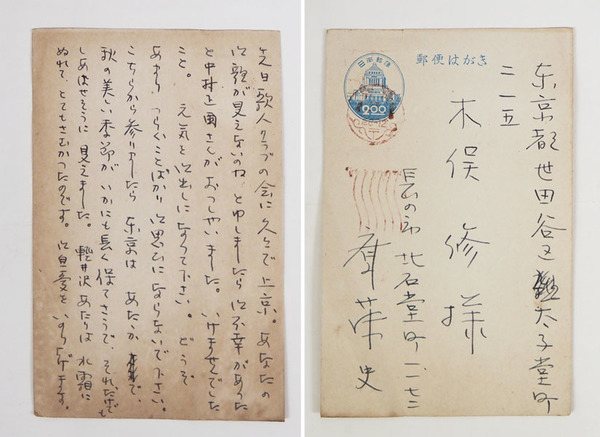 先日歌人クラブの会に久々で上京。あなたの
御顔が見えないのね と申しましたら御不幸があった
と中村正爾さんがおっしゃいました。いけませんでした
こと。元気を御出しになって下さい。どうぞ
あまり つらいことばかり御思ひにならないで下さい。
こちらから参りましたら 東京は あたたかで
秋の美しい季節がいかにも長く保てさうで、それだけでも
しあはせさうに見えました。軽井沢あたりは 氷霜に
ぬれて、とてもさむかったのです。御自愛を いのりあげます。
郵便はがき
日本郵便
2.00
東京都世田谷区太子堂町
三一五
木俣修様
長の市 北石堂町 一一七二
斎藤史